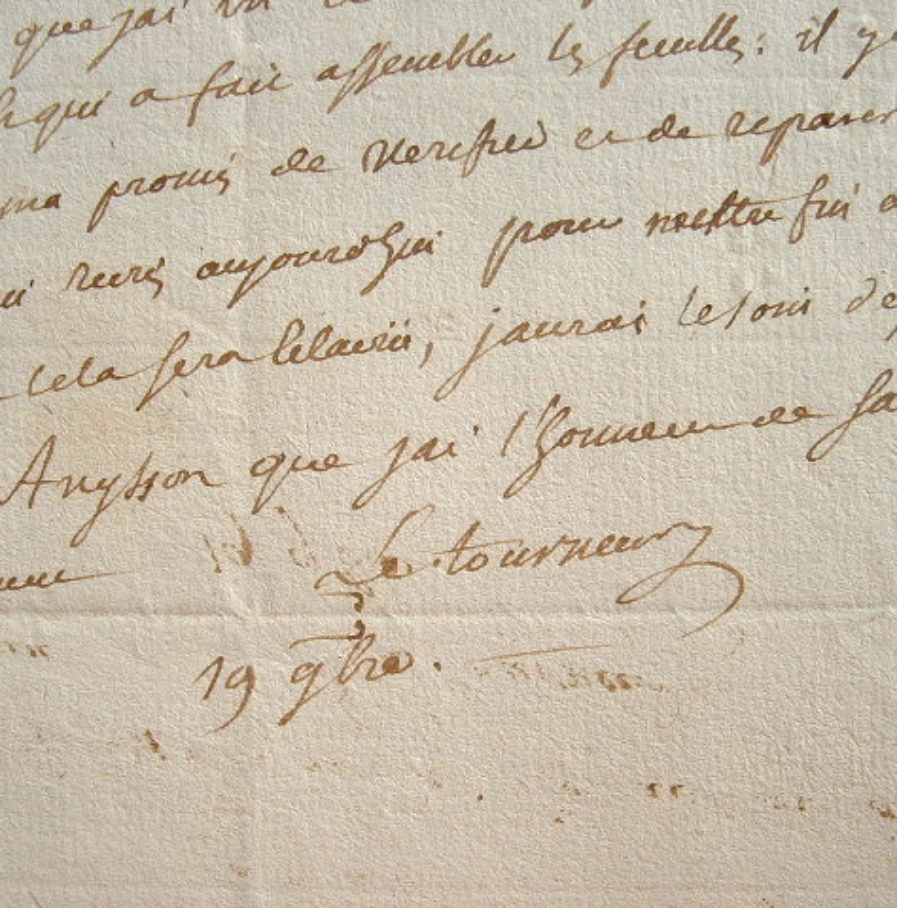 que jai vu
qui a fait assembler les feuilles: il y
ma promis de verifier et de reparer
aujourdhui pour mettre fin
cela sera eclairci, jaurai le soin de
Anysson que jai l'honneur de sa
Le tourneur
19 9bre.